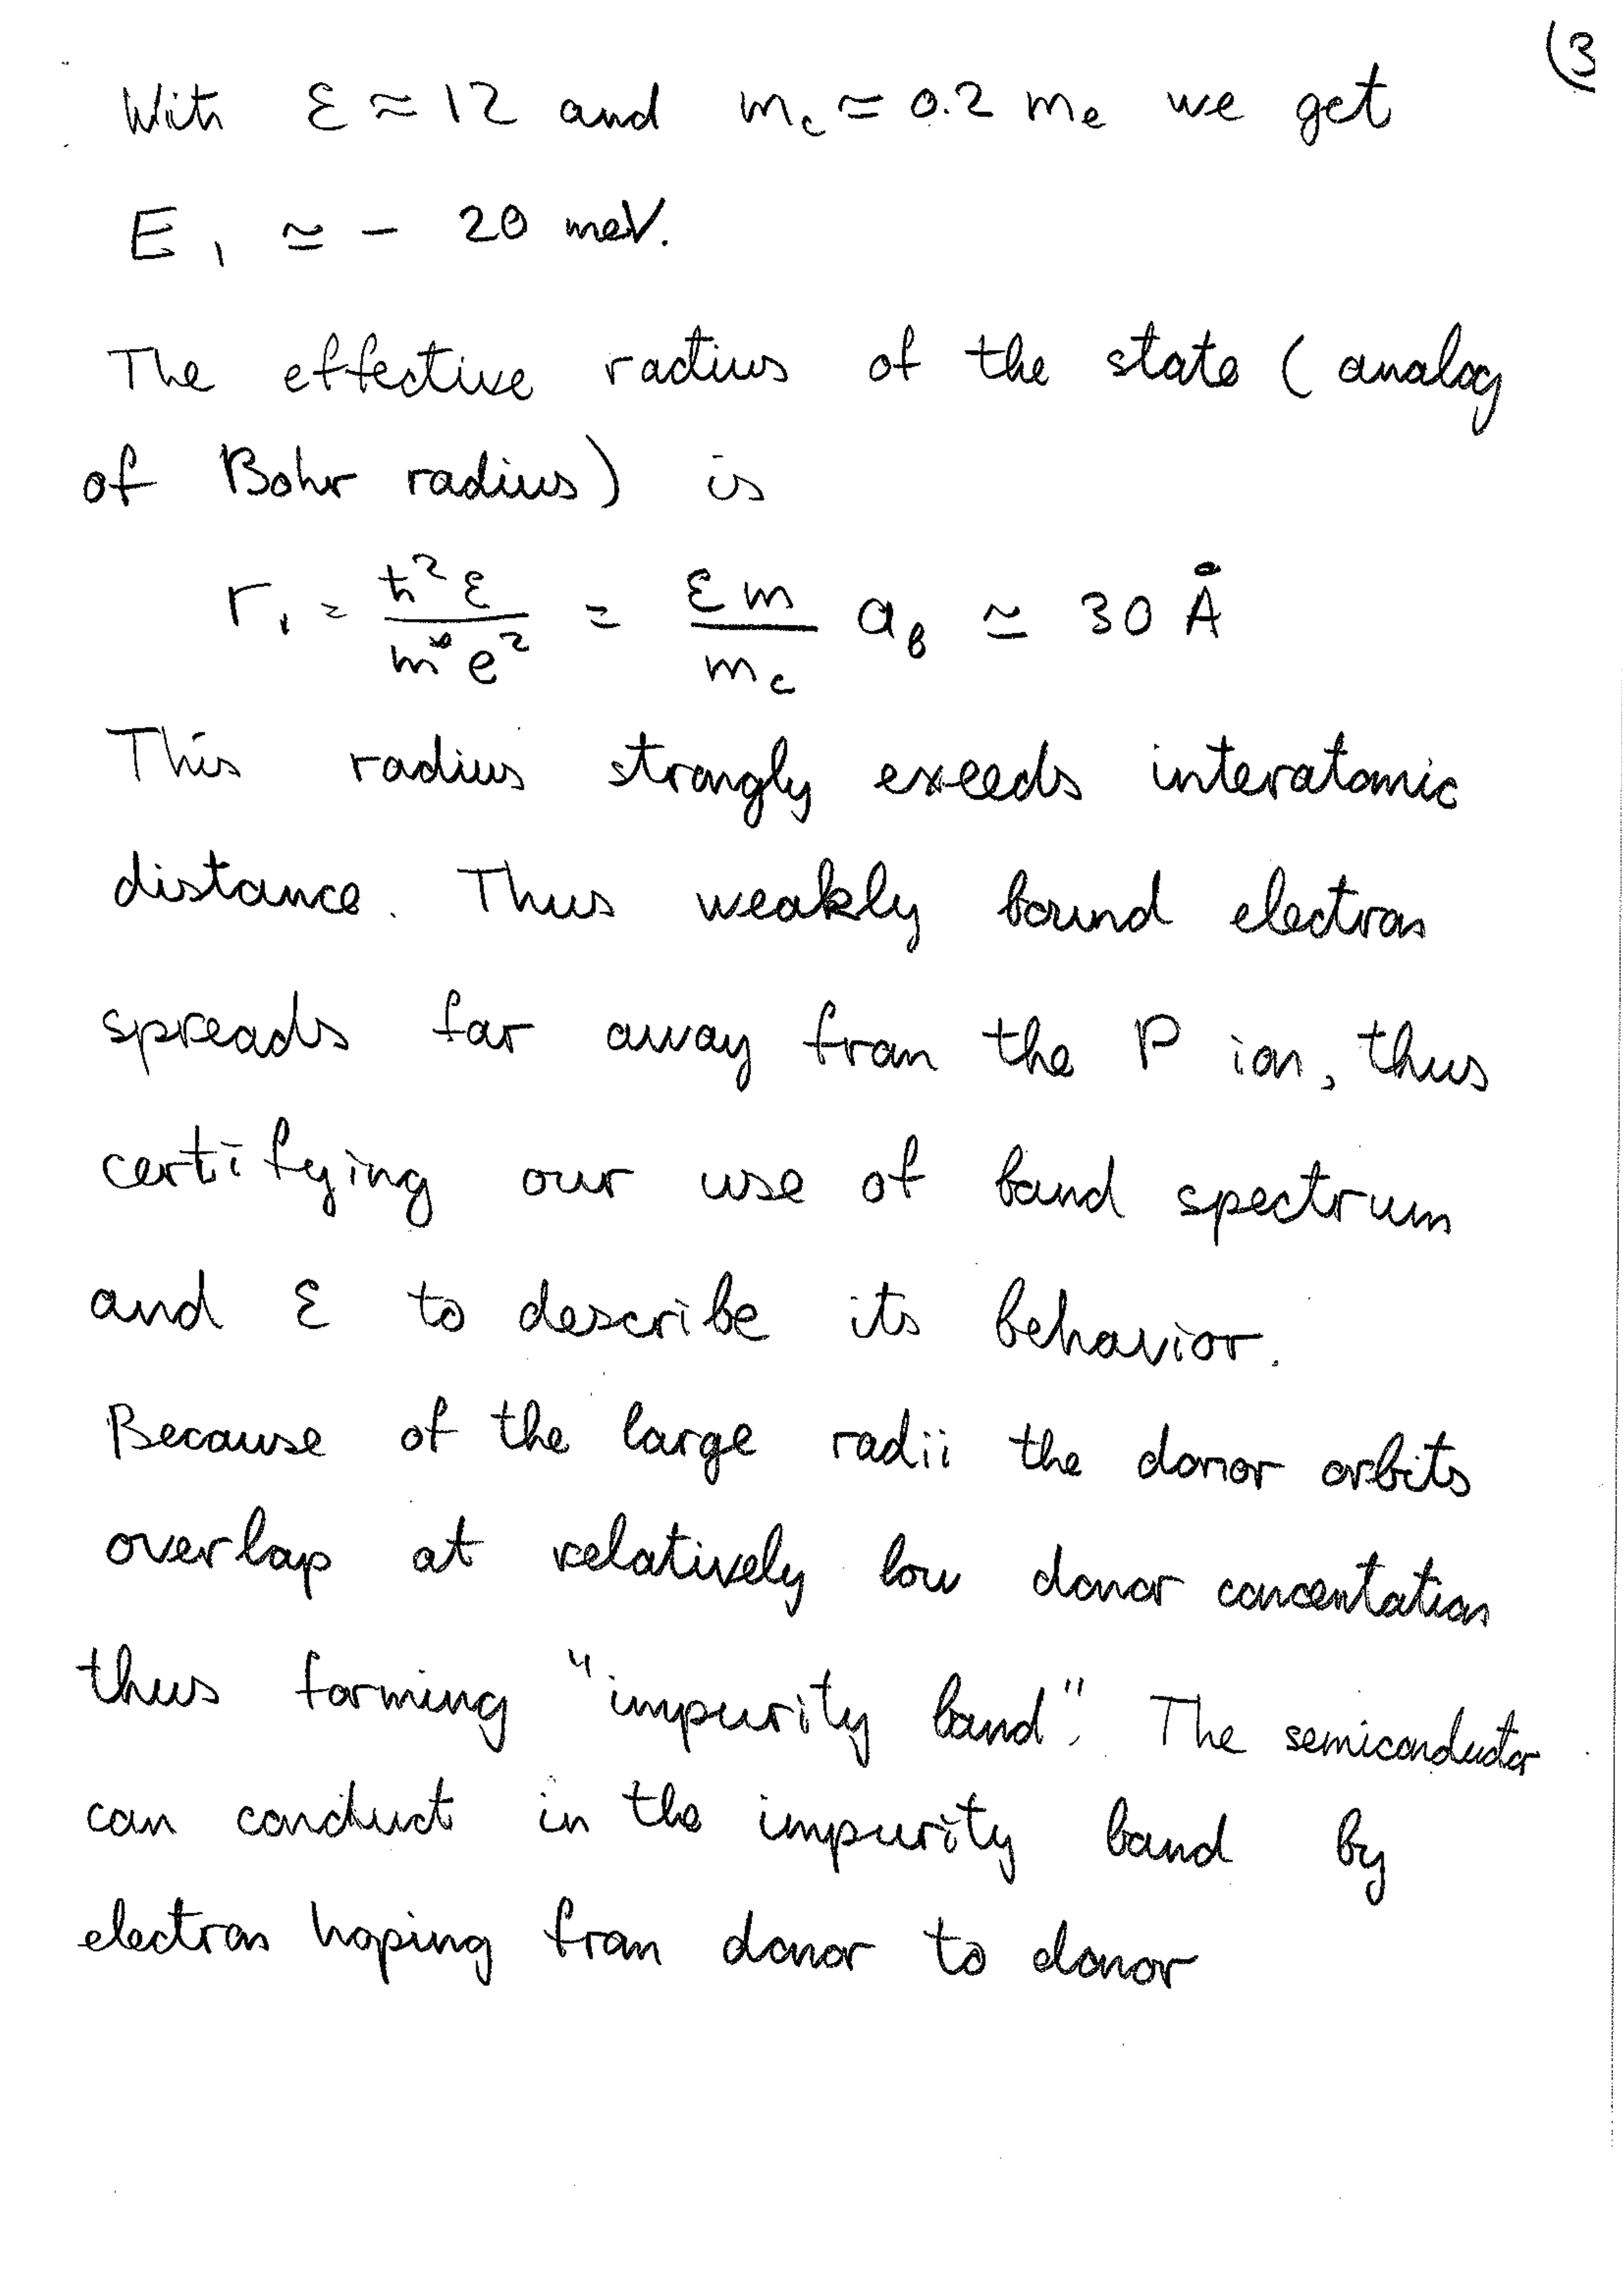 (3
With ε ≈ 12 and m_c ≃ 0.2 m_e we get
E_1 ≃ - 20 meV.
The effective radius of the state (analog
of Bohr radius) is
r_1 = ħ²ε / m*e² = εm / m_c a_B ≃ 30 Å
This radius strongly exeeds interatomic
distance. Thus weakly bound electron
spreads far away from the P ion, thus
certifying our use of band spectrum
and ε to describe its behavior.
Because of the large radii the donor orbits
overlap at relatively low donor concentation
thus forming "impurity band". The semiconductor
can conduct in the impurity band by
electron hoping from donor to donor